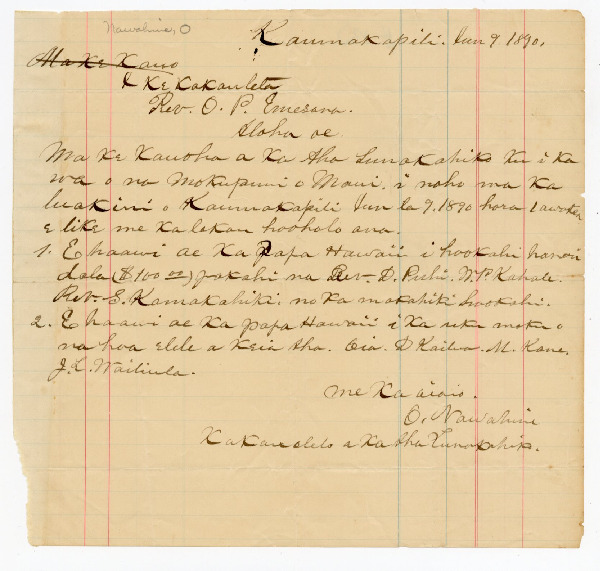 Nawahine, O
Kaumakapili. Jun 9 1890.
Ma Ke Kauo
I Ke Kakauleta
Rev. O. P. Emesona.
Aloha oe
Ma Ke Kauoha a Ka Aha Lunakahiko Ku i Ka
wa o na Mokupuni o Maui. i noho ma Ka
luakini o Kaumakapili Jun la 9. 1890 hora 1 awakea
E like me ka lakou hooholo ana.
1. E haawi ae Ka Papa Hawaii i hookahi haneri
dala ($100 00) pakahi na Rev. D. Puhi. W. P. Kahale.
Rev. E. Kamakahiki. no Ka makahiki hookahi.
2. E haawi ae Ka papa Hawaii i Ka uku moku o
na hoa elele a Keia Aha. Oia. D Kailua. M. Kane.
J. L.
Me Ka oiaio.
O. Nawahine
Kakauolelo a Ka Aha Lunakahiko.